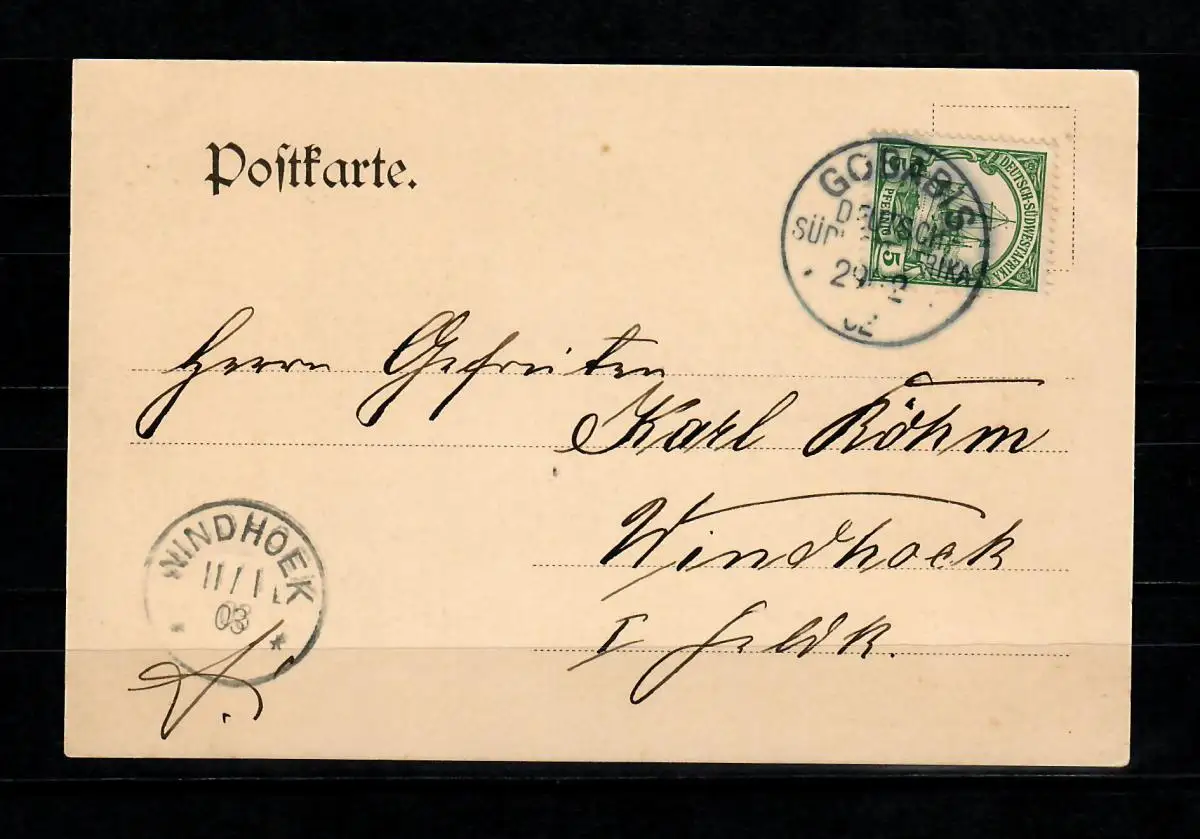 Postkarte.
GOBABIS
DEUTSCH-
SÜDWESTAFRIKA
29/12
02
DEUTSCH-SÜDWESTAFRIKA
5 PFENNIG 5
Herrn Gefreiten
Karl Böhm
Windhoek
I Feldk.
WINDHOEK
11/1
03